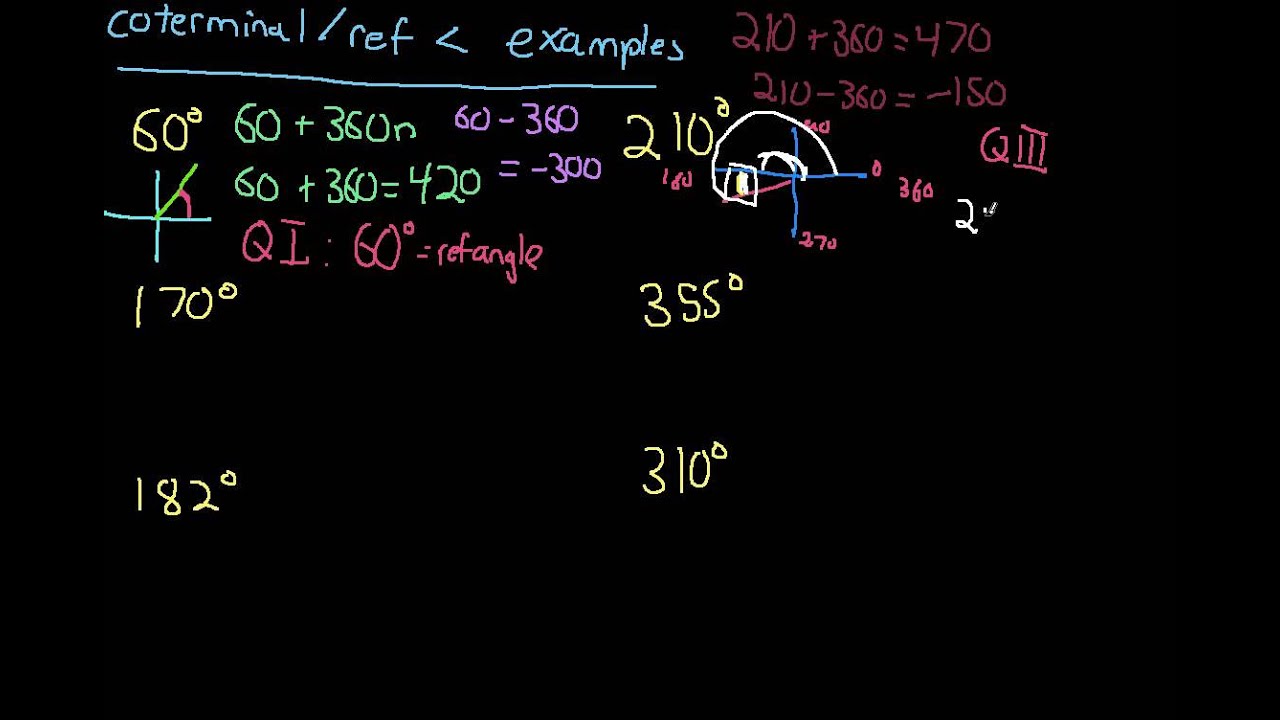 coterminal/ref < examples
210 + 360 = 470
210 - 360 = -150
60° 60 + 360n 60 - 360
= -300
60 + 360 = 420
QI : 60° = ref angle
210°
QIII
90
180
0
360
270
2
170°
355°
182°
310°